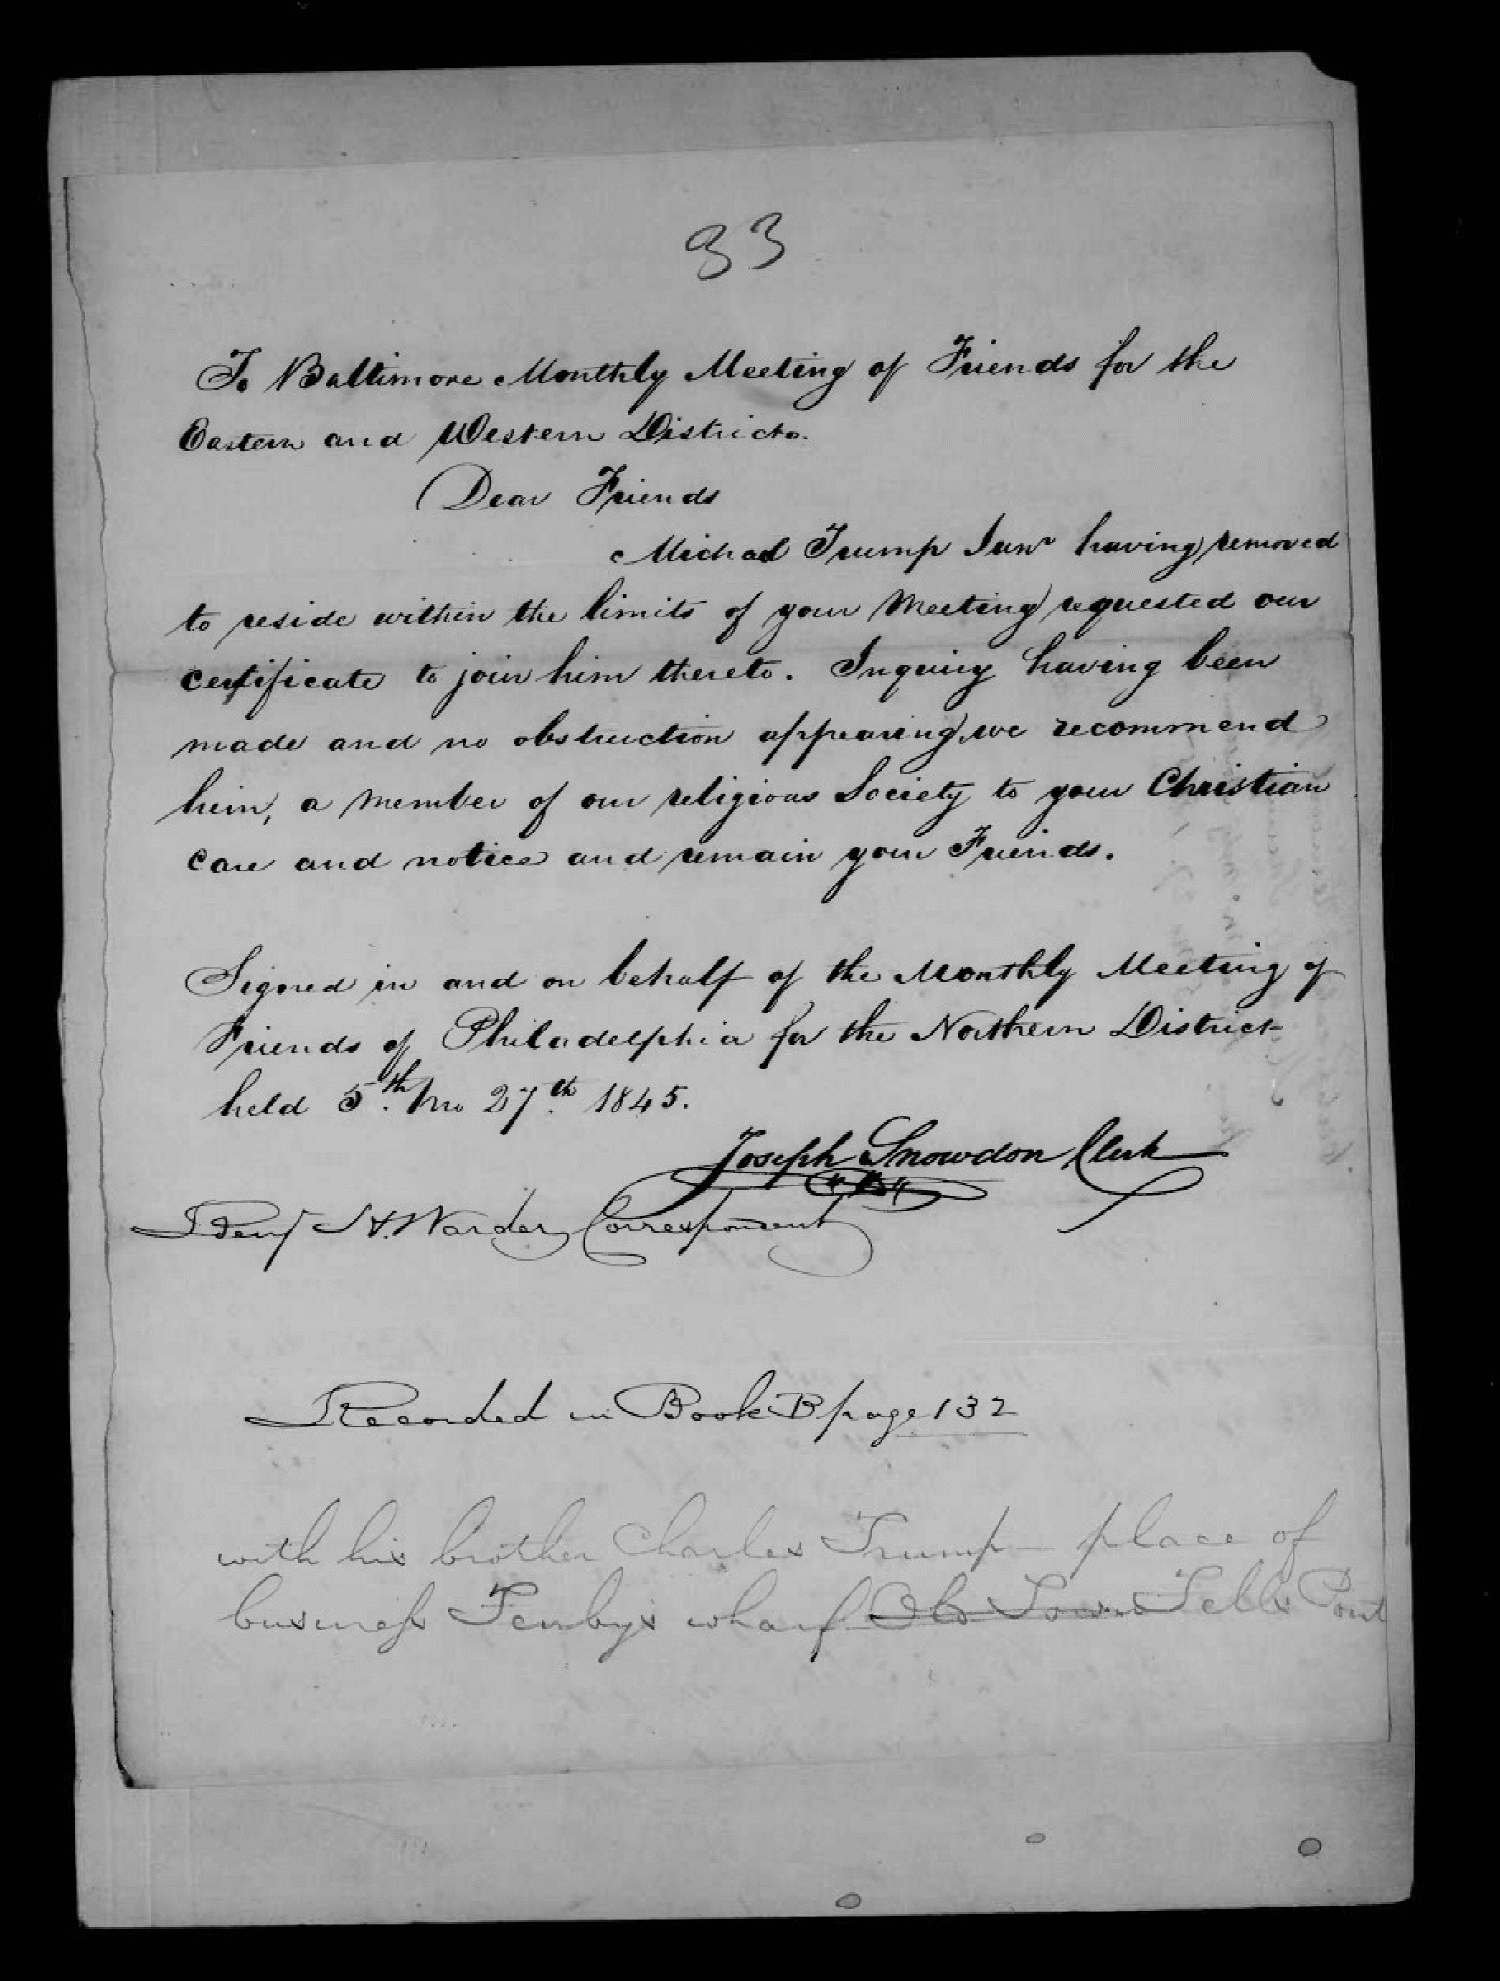 33
To Baltimore Monthly Meeting of Friends for the
Eastern and Western Districts.
Dear Friends
Michael Trump Junr having removed
to reside within the limits of your Meeting requested our
certificate to join him thereto. Inquiry having been
made and no obstruction appearing, we recommend
him, a member of our religious Society to your Christian
care and notice and remain your Friends.
Signed in and on behalf of the Monthly Meeting of
Friends of Philadelphia for the Northern District
held 5.th Mo 27.th 1845.
Joseph Snowdon Clerk
Benj H. Warder Correspondent
Recorded in Book B page 132
with his brother Charles Trump place of
business Fenbys wharf Fells Point